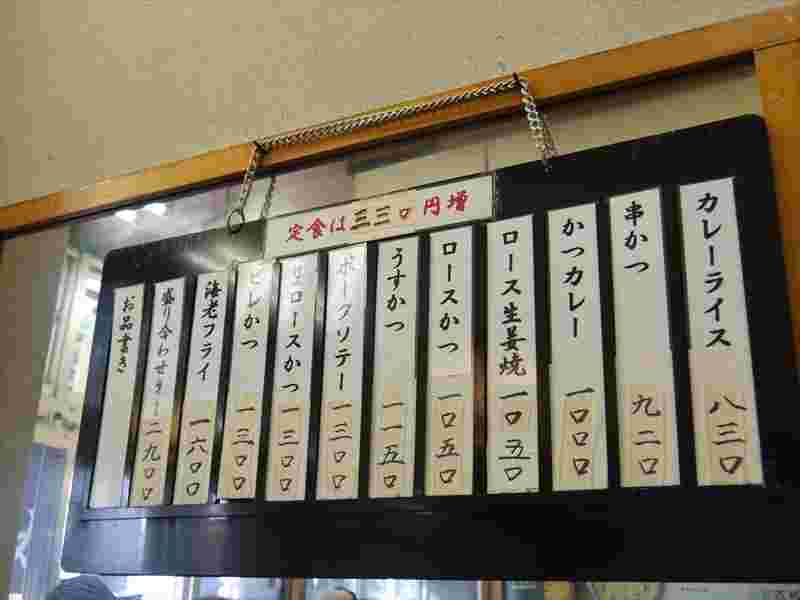 定食は三三〇円増
カレーライス 八三〇
串かつ 九二〇
かつカレー 一〇〇〇
ロース生姜焼 一〇五〇
ロースかつ 一〇五〇
うすかつ 一一五〇
ポークソテー 一三〇〇
ロースかつ 一三〇〇
ヒレかつ 一三〇〇
海老フライ 一六〇〇
盛り合わせ 二九〇〇
お品書き